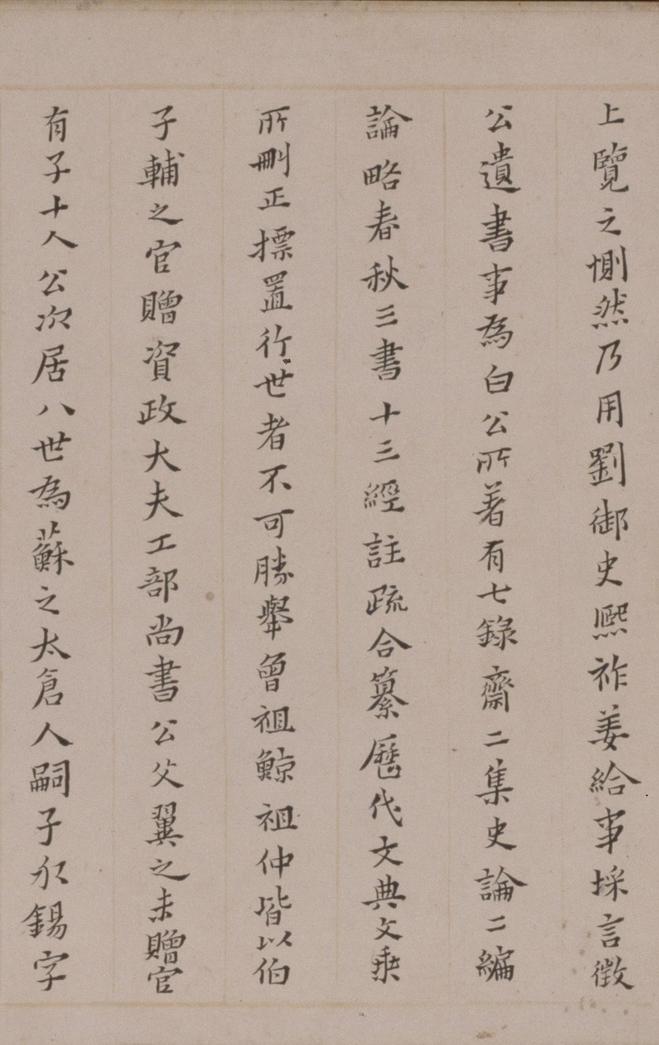 上覽之惻然乃用劉御史熙祚姜給事埰言徵
公遺書事為白公所著有七錄齋二集史論二編
論略春秋三書十三經註疏合纂歷代文典文乘
所刪正摽置行世者不可勝舉曾祖鯨祖仲皆以伯
子輔之官贈資政大夫工部尚書公父翼之未贈官
有子十人公次居八世為蘇之太倉人嗣子永錫字